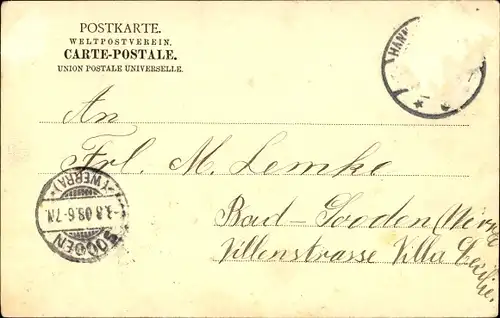 POSTKARTE.
WELTPOSTVEREIN.
CARTE-POSTALE.
UNION POSTALE UNIVERSELLE.
HANN
An
Frl. M. Lemke
Bad-Sooden (Werra
Villenstrasse Villa
SOODEN
(WERRA)
-3.8.08.6-7N.